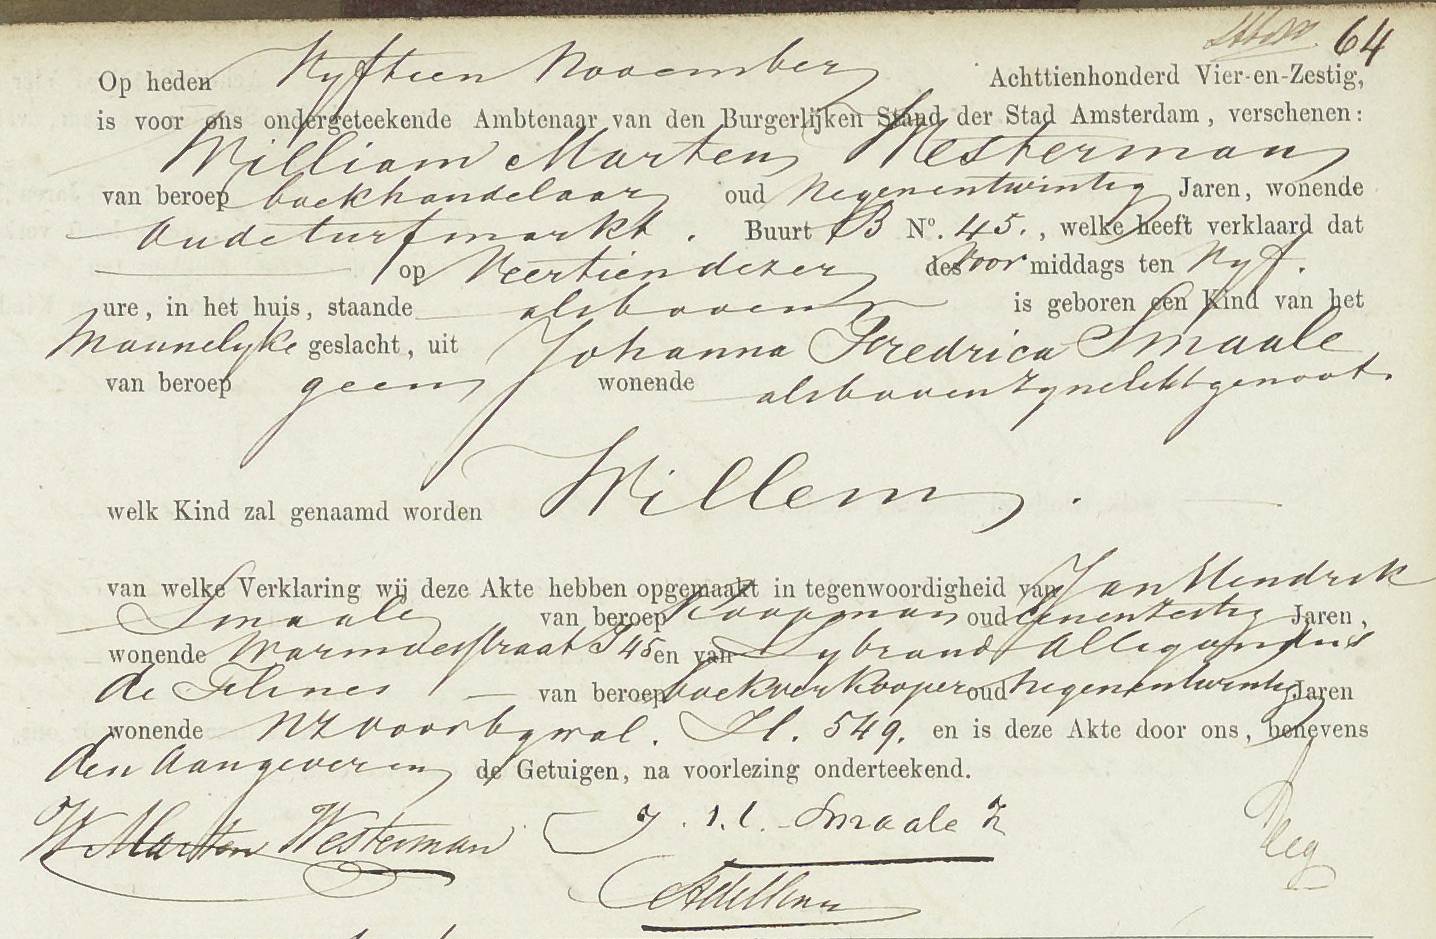 64
Op heden Vyftien November Achttienhonderd Vier-en-Zestig,
is voor ons ondergeteekende Ambtenaar van den Burgerlijken Stand der Stad Amsterdam, verschenen:
William Marten Westerman
van beroep boekhandelaar oud negenentwintig Jaren, wonende
Oudeturfmarkt. Buurt B No. 45., welke heeft verklaard dat
op Veertien dezer des voor middags ten Vyf.
ure, in het huis, staande alsboven is geboren een Kind van het
Mannelyke geslacht, uit Johanna Fredrica Smaale
van beroep geen wonende alsboven zyne echtgenoot.
welk Kind zal genaamd worden Willem.
van welke Verklaring wij deze Akte hebben opgemaakt in tegenwoordigheid van Jan Hendrik
Smaale van beroep Koopman oud eenenzestig Jaren,
wonende Warmoesstraat J 45 en van Sybrand Alligondus
de Flines van beroep boekverkooper oud negenentwintig Jaren
wonende NZ voorbgwal. H. 549. en is deze Akte door ons, benevens
den Aangever en de Getuigen, na voorlezing onderteekend.
W Marten Westerman J. H. Smaale Z